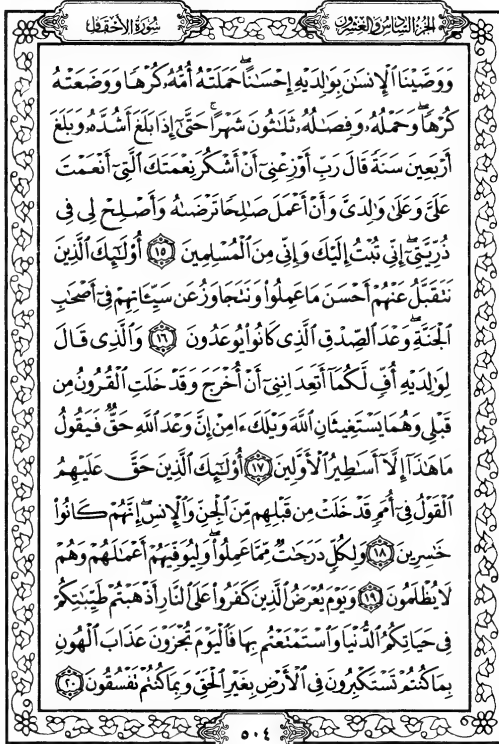 سُورَةُ الأَحْقَافِ الجُزْءُ السَّادِسُ وَالعِشْرُونَ
وَوَصَّيْنَا ٱلْإِنسَٰنَ بِوَٰلِدَيْهِ إِحْسَٰنًا ۖ حَمَلَتْهُ أُمُّهُۥ كُرْهًا وَوَضَعَتْهُ
كُرْهًا ۖ وَحَمْلُهُۥ وَفِصَٰلُهُۥ ثَلَٰثُونَ شَهْرًا ۚ حَتَّىٰٓ إِذَا بَلَغَ أَشُدَّهُۥ وَبَلَغَ
أَرْبَعِينَ سَنَةً قَالَ رَبِّ أَوْزِعْنِىٓ أَنْ أَشْكُرَ نِعْمَتَكَ ٱلَّتِىٓ أَنْعَمْتَ
عَلَىَّ وَعَلَىٰ وَٰلِدَىَّ وَأَنْ أَعْمَلَ صَٰلِحًا تَرْضَىٰهُ وَأَصْلِحْ لِى فِى
ذُرِّيَّتِىٓ ۖ إِنِّى تُبْتُ إِلَيْكَ وَإِنِّى مِنَ ٱلْمُسْلِمِينَ ١٥ أُو۟لَٰٓئِكَ ٱلَّذِينَ
نَتَقَبَّلُ عَنْهُمْ أَحْسَنَ مَا عَمِلُوا۟ وَنَتَجَاوَزُ عَن سَيِّـَٔاتِهِمْ فِىٓ أَصْحَٰبِ
ٱلْجَنَّةِ ۖ وَعْدَ ٱلصِّدْقِ ٱلَّذِى كَانُوا۟ يُوعَدُونَ ١٦ وَٱلَّذِى قَالَ
لِوَٰلِدَيْهِ أُفٍّ لَّكُمَآ أَتَعِدَانِنِىٓ أَنْ أُخْرَجَ وَقَدْ خَلَتِ ٱلْقُرُونُ مِن
قَبْلِى وَهُمَا يَسْتَغِيثَانِ ٱللَّهَ وَيْلَكَ ءَامِنْ إِنَّ وَعْدَ ٱللَّهِ حَقٌّ فَيَقُولُ
مَا هَٰذَآ إِلَّآ أَسَٰطِيرُ ٱلْأَوَّلِينَ ١٧ أُو۟لَٰٓئِكَ ٱلَّذِينَ حَقَّ عَلَيْهِمُ
ٱلْقَوْلُ فِىٓ أُمَمٍ قَدْ خَلَتْ مِن قَبْلِهِم مِّنَ ٱلْجِنِّ وَٱلْإِنسِ ۖ إِنَّهُمْ كَانُوا۟
خَٰسِرِينَ ١٨ وَلِكُلٍّ دَرَجَٰتٌ مِّمَّا عَمِلُوا۟ ۖ وَلِيُوَفِّيَهُمْ أَعْمَٰلَهُمْ وَهُمْ
لَا يُظْلَمُونَ ١٩ وَيَوْمَ يُعْرَضُ ٱلَّذِينَ كَفَرُوا۟ عَلَى ٱلنَّارِ أَذْهَبْتُمْ طَيِّبَٰتِكُمْ
فِى حَيَاتِكُمُ ٱلدُّنْيَا وَٱسْتَمْتَعْتُم بِهَا فَٱلْيَوْمَ تُجْزَوْنَ عَذَابَ ٱلْهُونِ
بِمَا كُنتُمْ تَسْتَكْبِرُونَ فِى ٱلْأَرْضِ بِغَيْرِ ٱلْحَقِّ وَبِمَا كُنتُمْ تَفْسُقُونَ ٢٠
٥٠٤